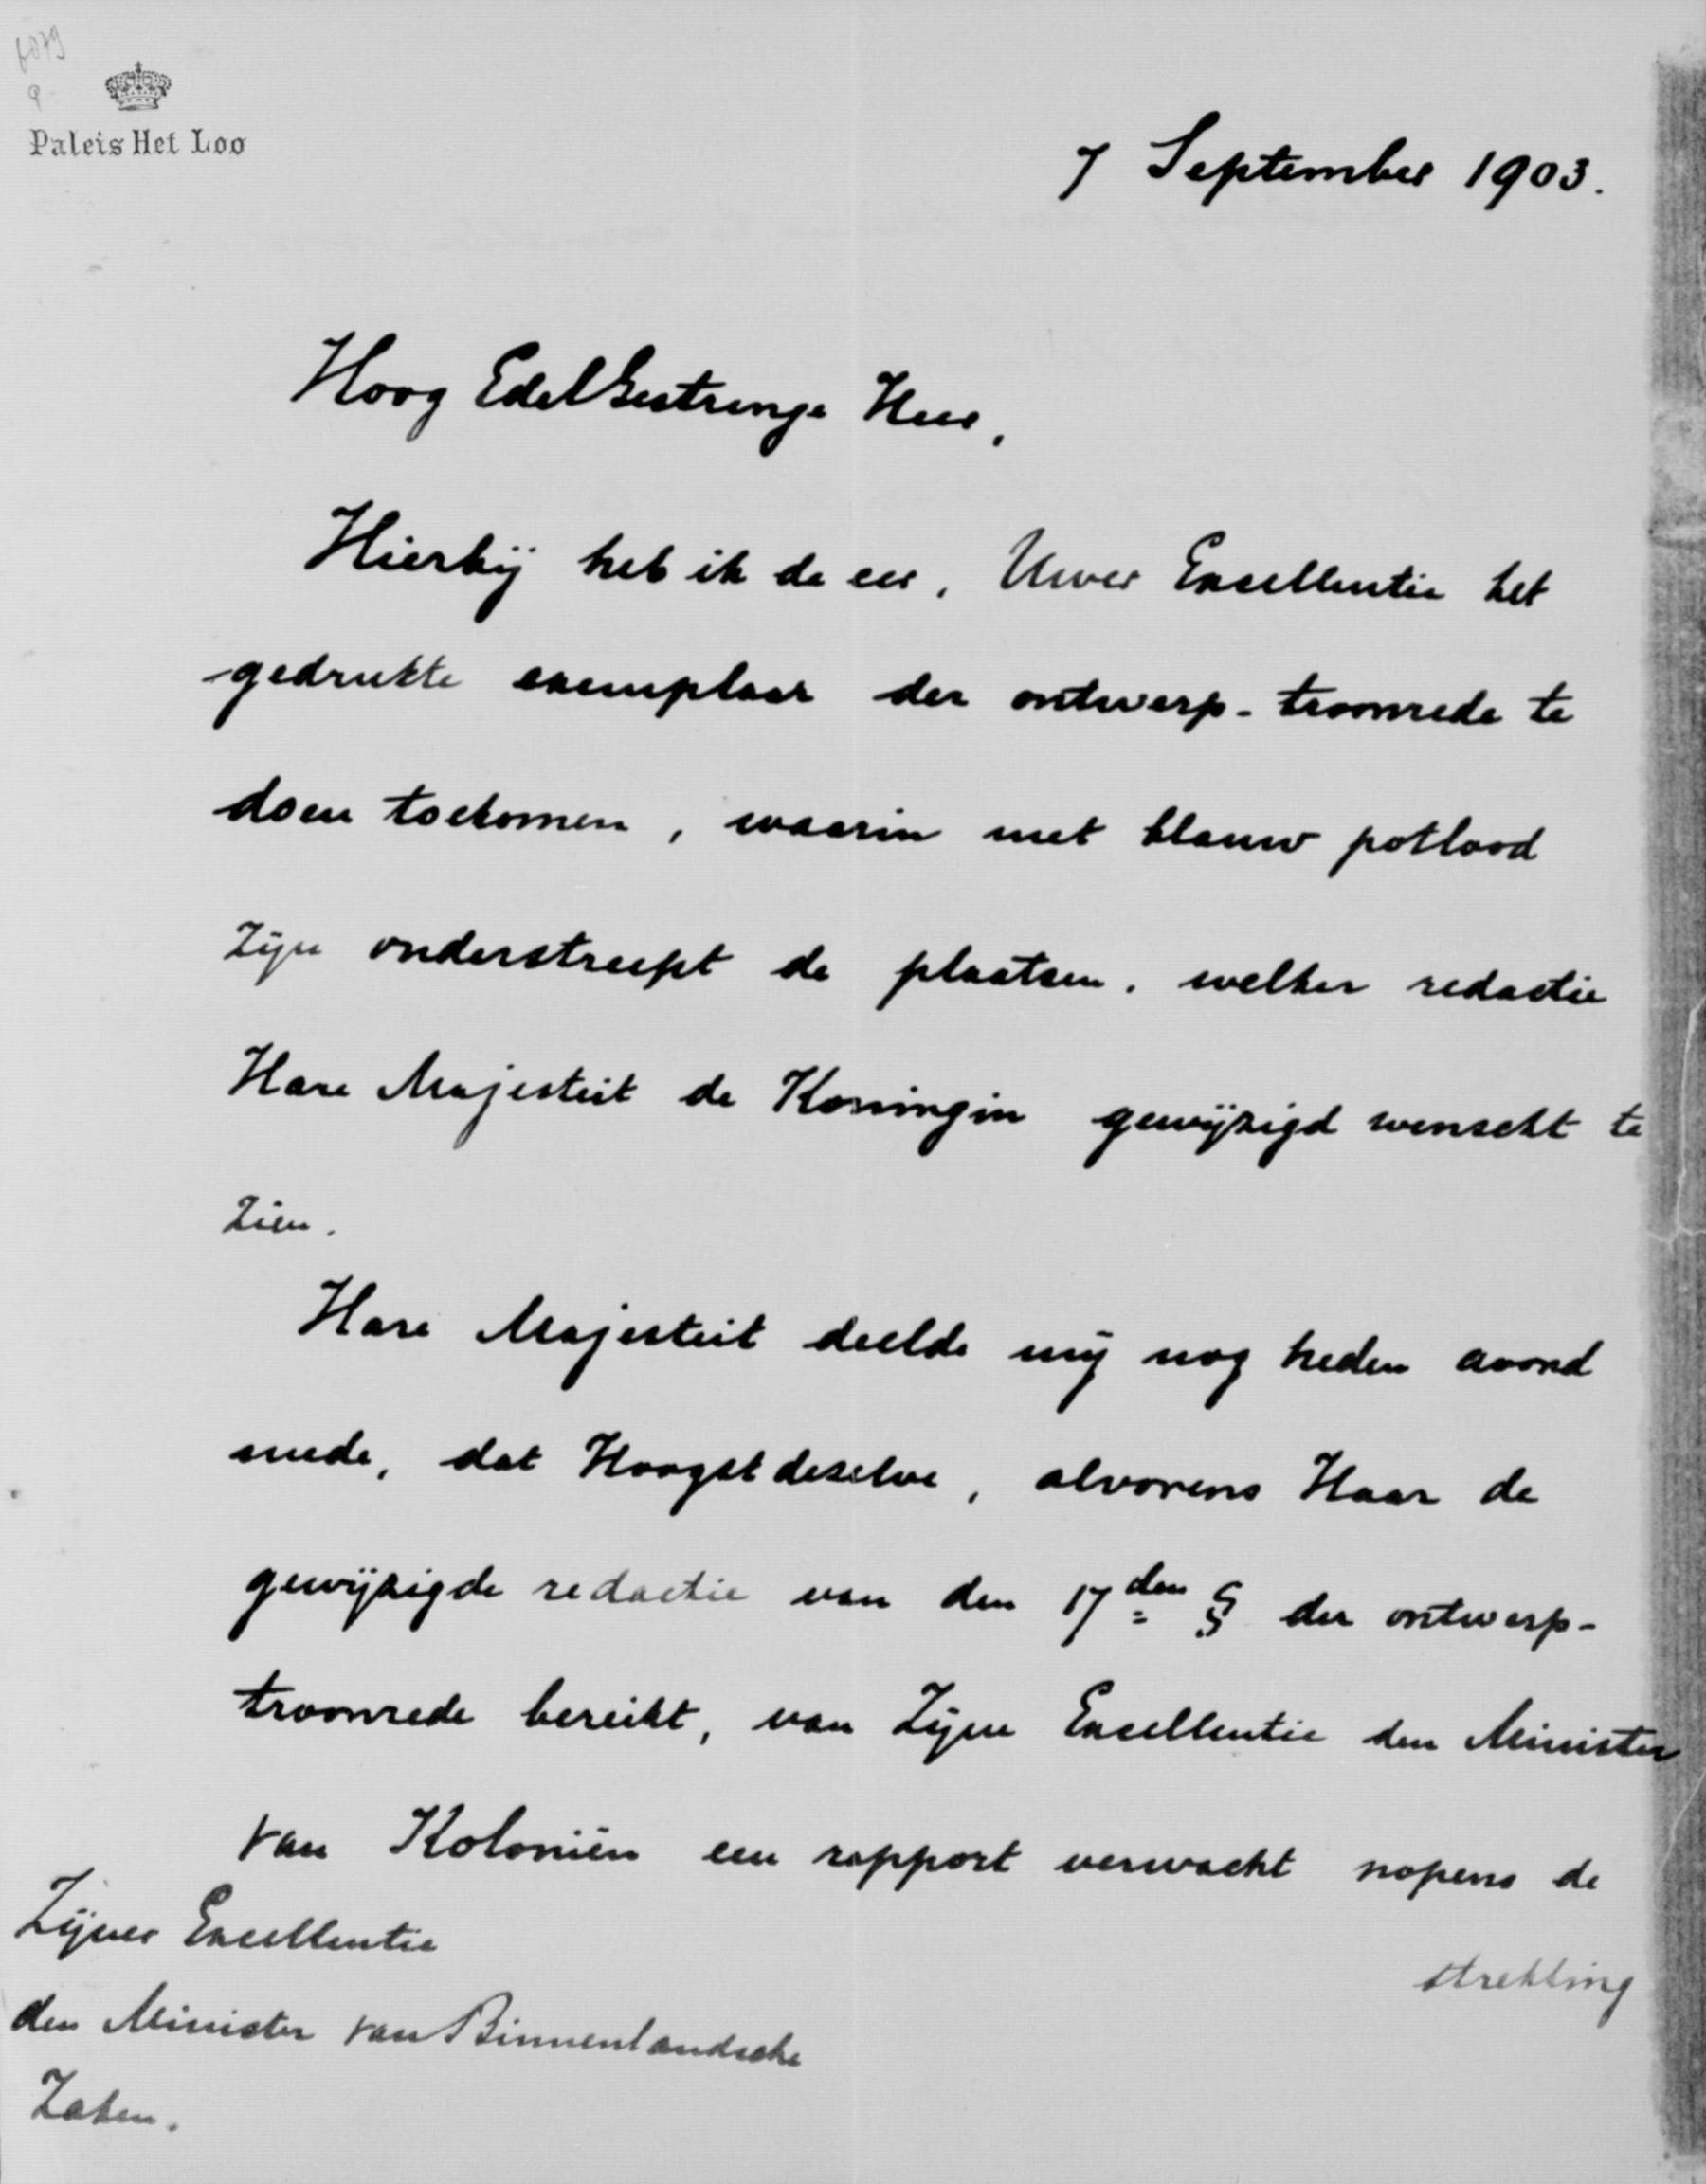 6079
9
Paleis Het Loo
7 September 1903.
Hoog EdelGestrenge Heer,
Hierbij heb ik de eer, Uwer Excellentie het
gedrukte exemplaar der ontwerp-troonrede te
doen toekomen, waarin met blauw potlood
zijn onderstreept de plaatsen, welker redactie
Hare Majesteit de Koningin gewijzigd wenscht te
zien.
Hare Majesteit deelde mij nog heden avond
mede, dat Hoogstdezelve, alvorens Haar de
gewijzigde redactie van den 17den § der ontwerp-
troonrede bereikt, van Zijne Excellentie den Minister
van Koloniën een rapport verwacht nopens de
strekking
Zijner Excellentie
den Minister van Binnenlandsche
Zaken.